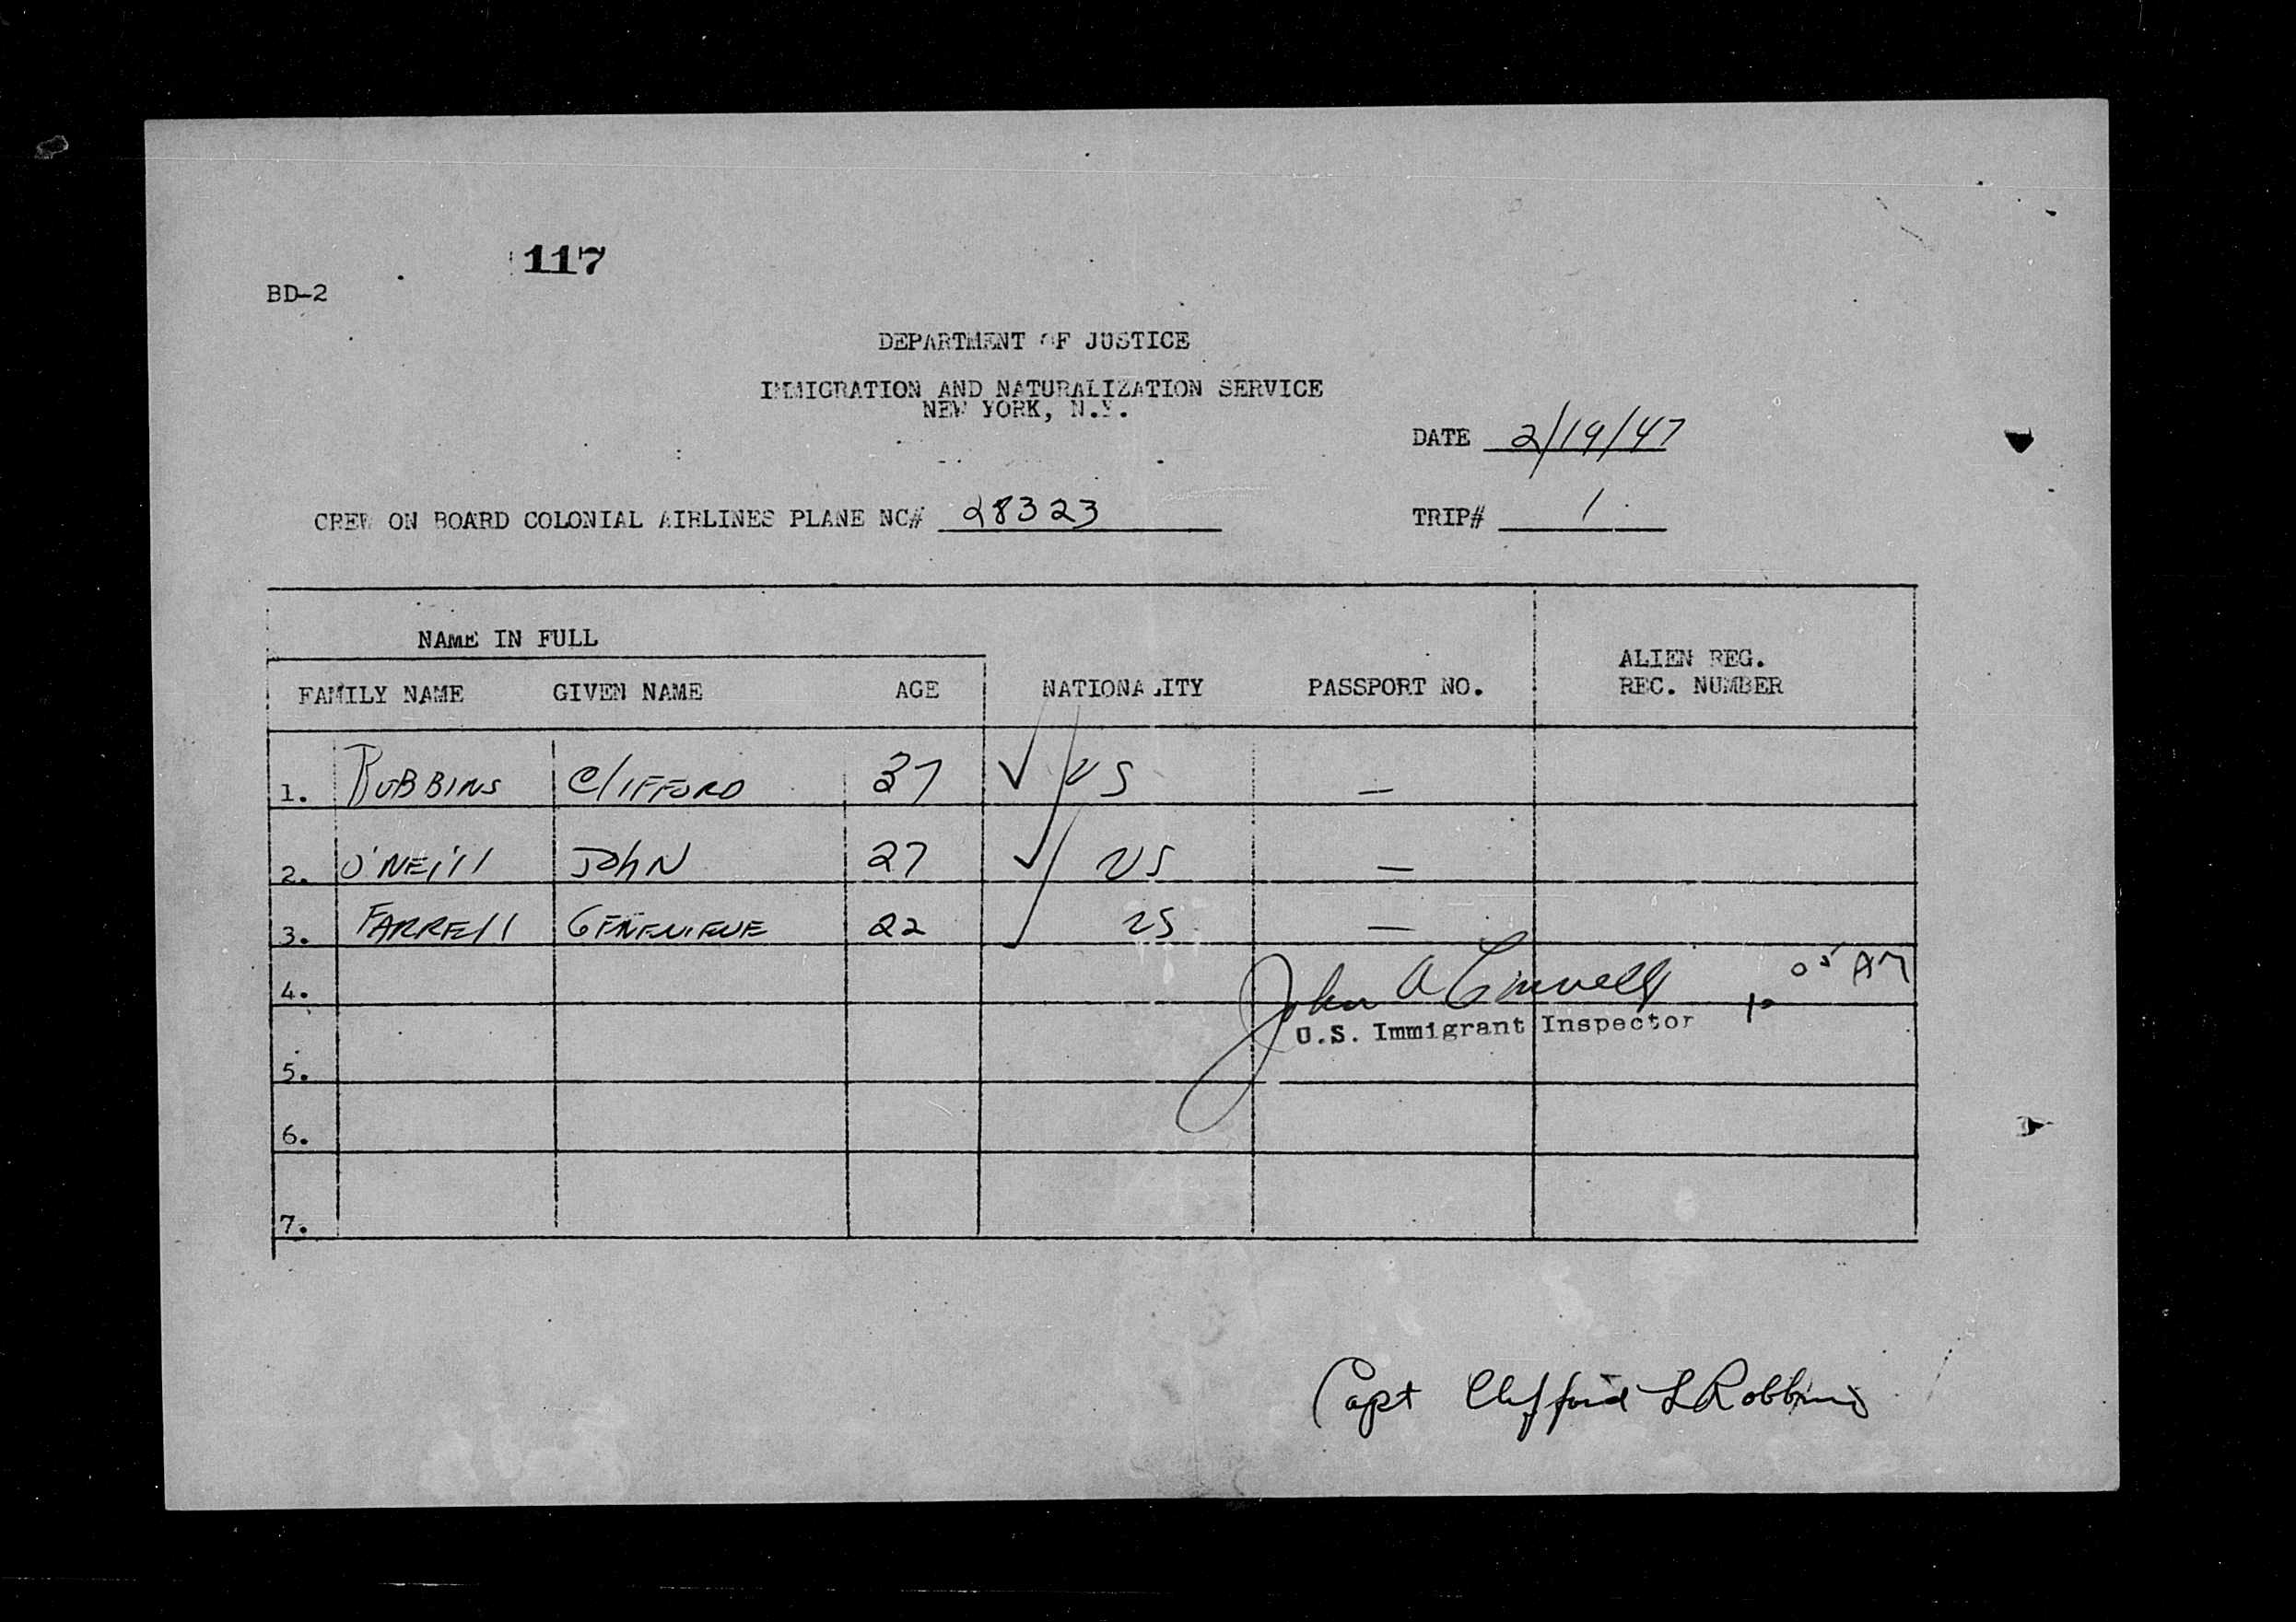 117
BD-2
DEPARTMENT OF JUSTICE
IMMIGRATION AND NATURALIZATION SERVICE
NEW YORK, N.Y.
DATE 2/19/47
CREW ON BOARD COLONIAL AIRLINES PLANE NC# 28323 TRIP# 1
NAME IN FULL
FAMILY NAME GIVEN NAME AGE NATIONALITY PASSPORT NO. ALIEN REG. REC. NUMBER
1. ROBBINS CLIFFORD 37 ✓ US —
2. O'NEILL JOHN 27 ✓ US —
3. FARRELL GENEVIEVE 22 ✓ US —
John A 10 05 AM
4.
U.S. Immigrant Inspector
5.
6.
7.
Capt Clifford L Robbins